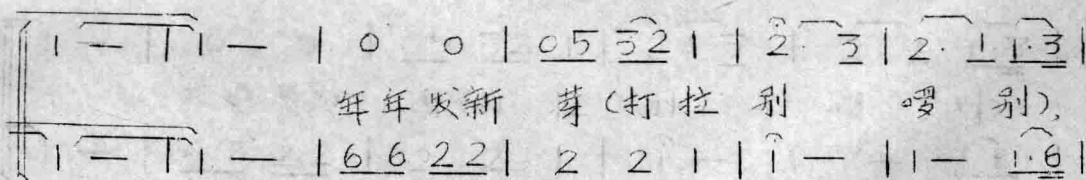 1 — | 1 — | 0 0 | 05 32 1 | 2. 3 | 2. 1 1.3 |
年年发新 芽(打拉 别 啰 别),
1 — | 1 — | 6 6 2 2 | 2 2 1 | 1 — | 1 — 1.6 |